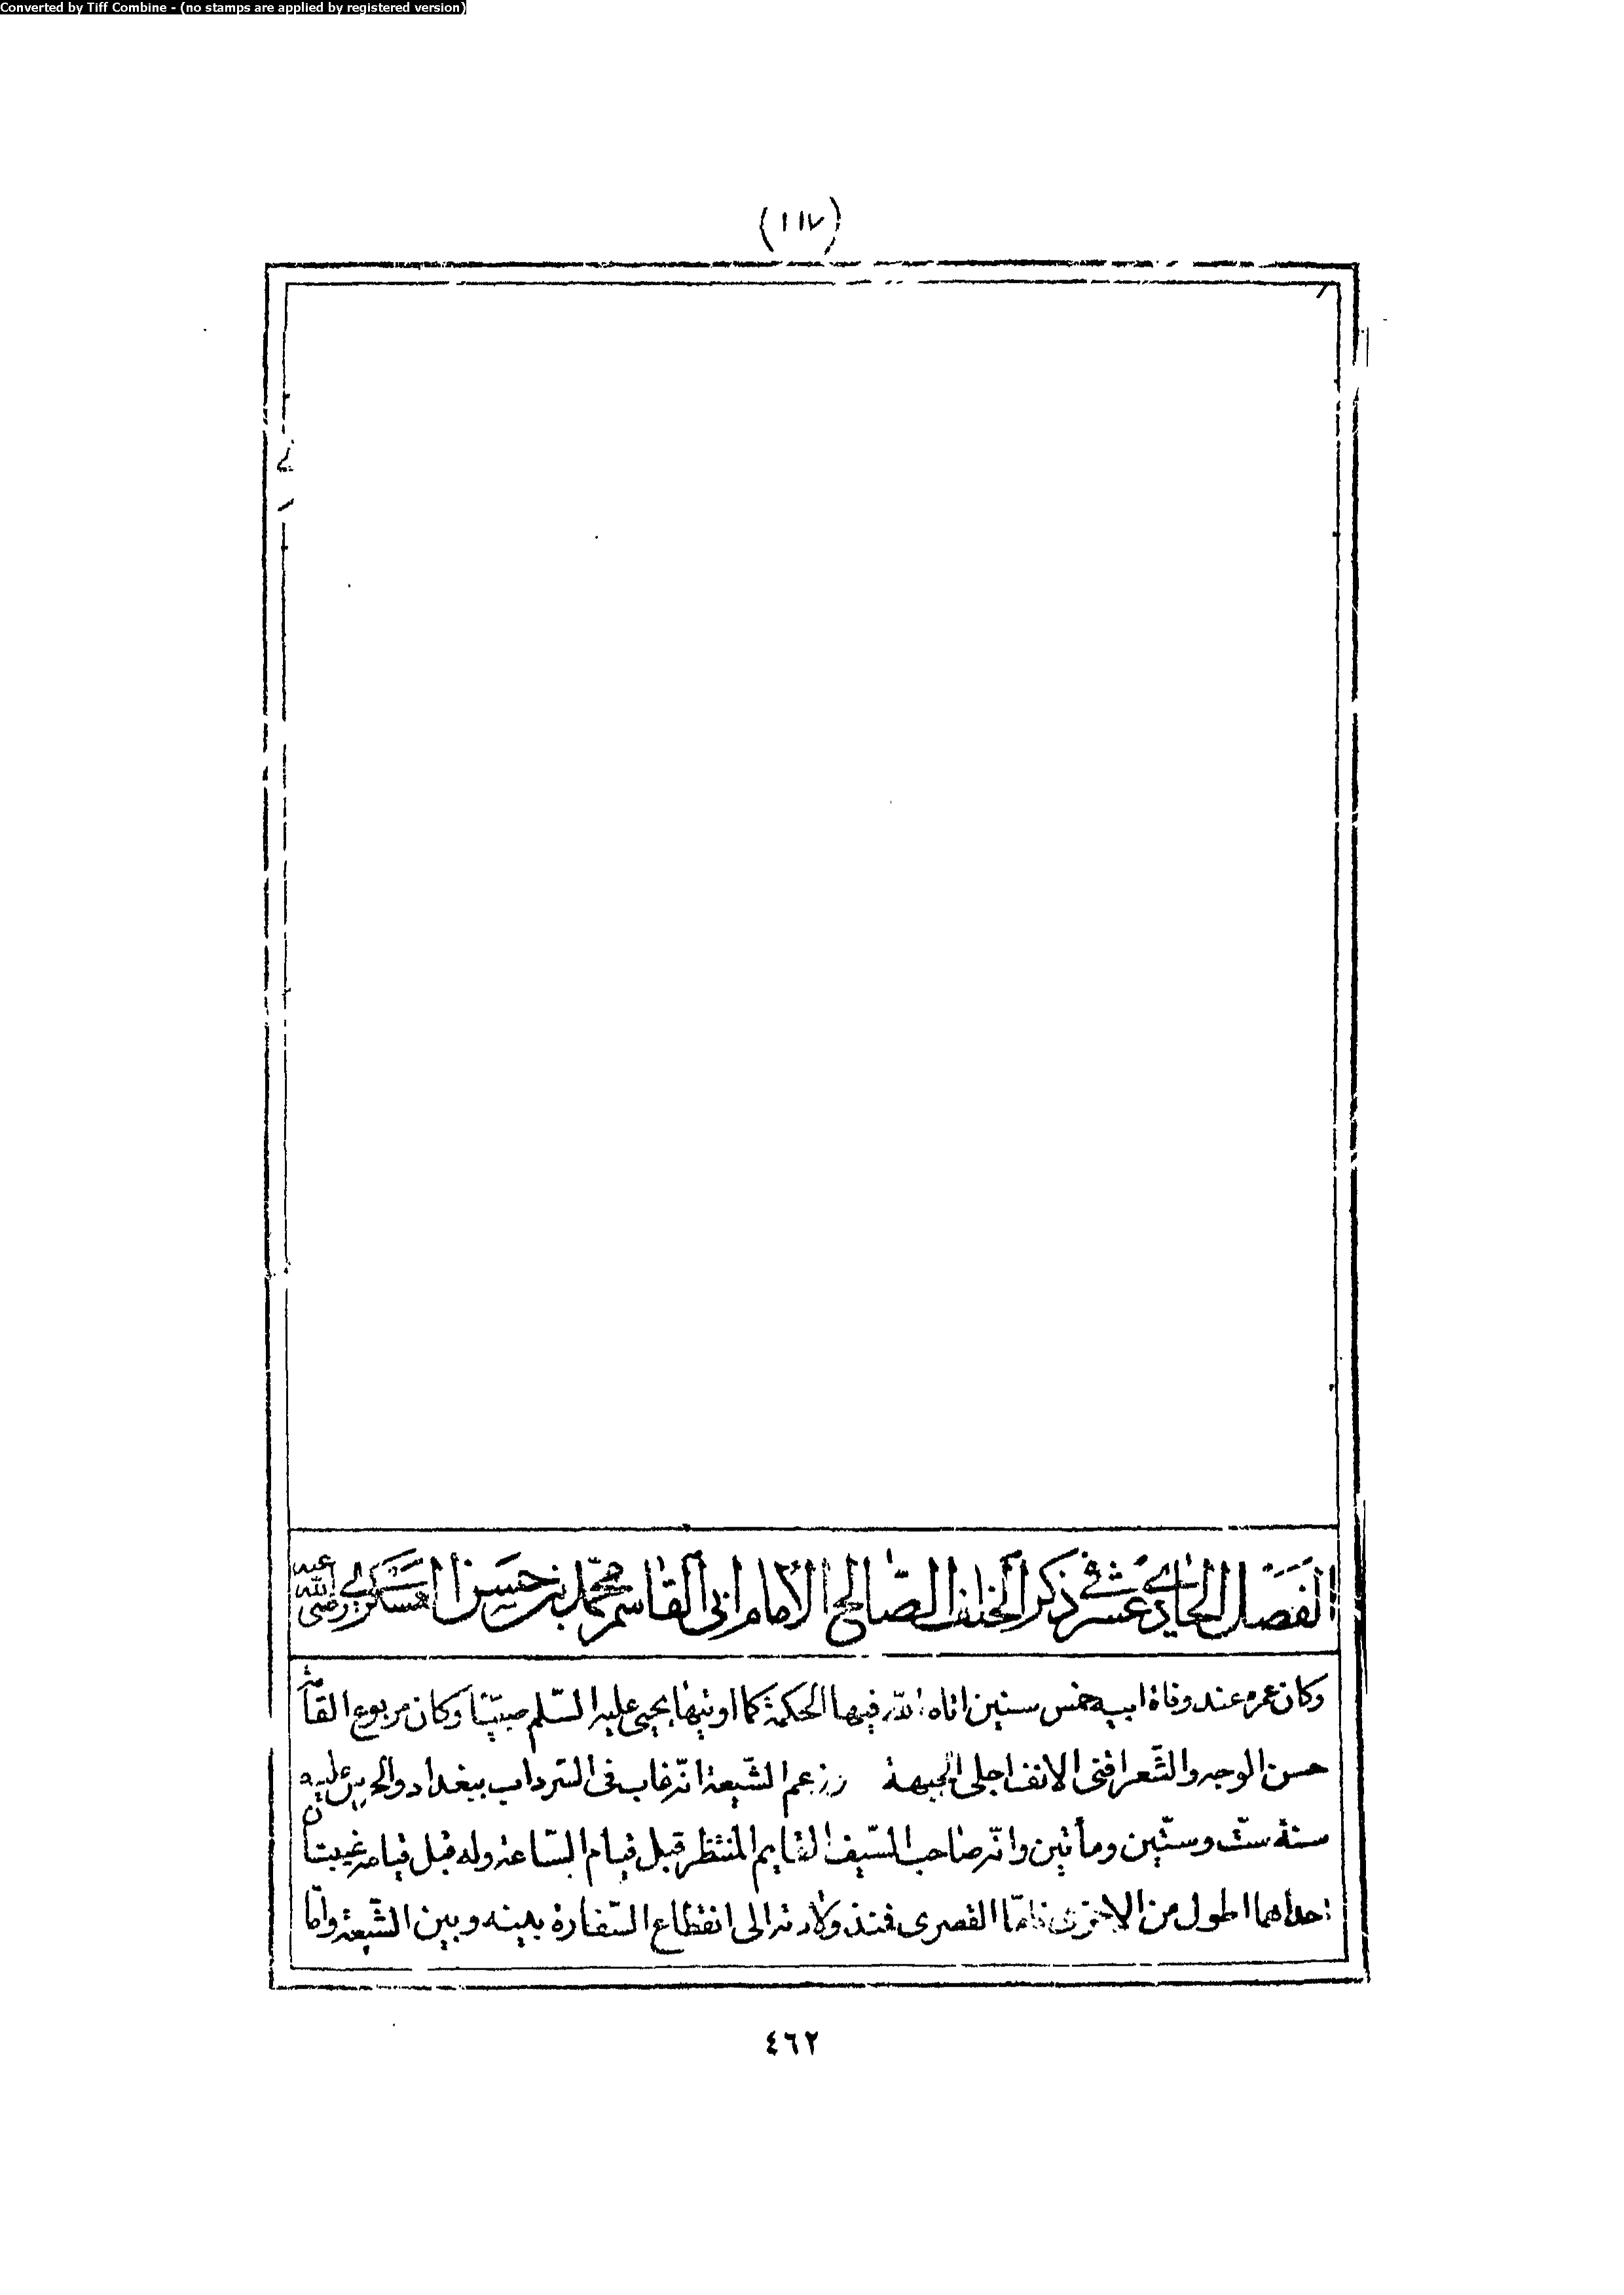 Converted by Tiff Combine - (no stamps are applied by registered version)
(١١٧)
الفصل الحادي عشر في ذكر الخلف الصالح الامام ابي القاسم محمد بن حسن العسكري رضي الله عنه
وكان عمره عند وفاة ابيه خمس سنين اتاه الله فيها الحكمة كما اوتيها يحيى عليه السّلم صبيّا وكان مربوع القامة
حسن الوجه والشّعر اقنى الانف اجلى الجبهة وزعم الشّيعة انّه غاب فى السّرداب ببغداد والحرس عليه
سنة ستّ وستّين ومأتين وانّه صاحب السّيف القايم المنتظر قبل قيام السّاعة وله قبل قيامه غيبتان
احداهما اطول من الاخرى فامّا القصرى فمنذ ولادته الى انقطاع السّفارة بينه وبين الشّيعة وامّا
٤٦٢